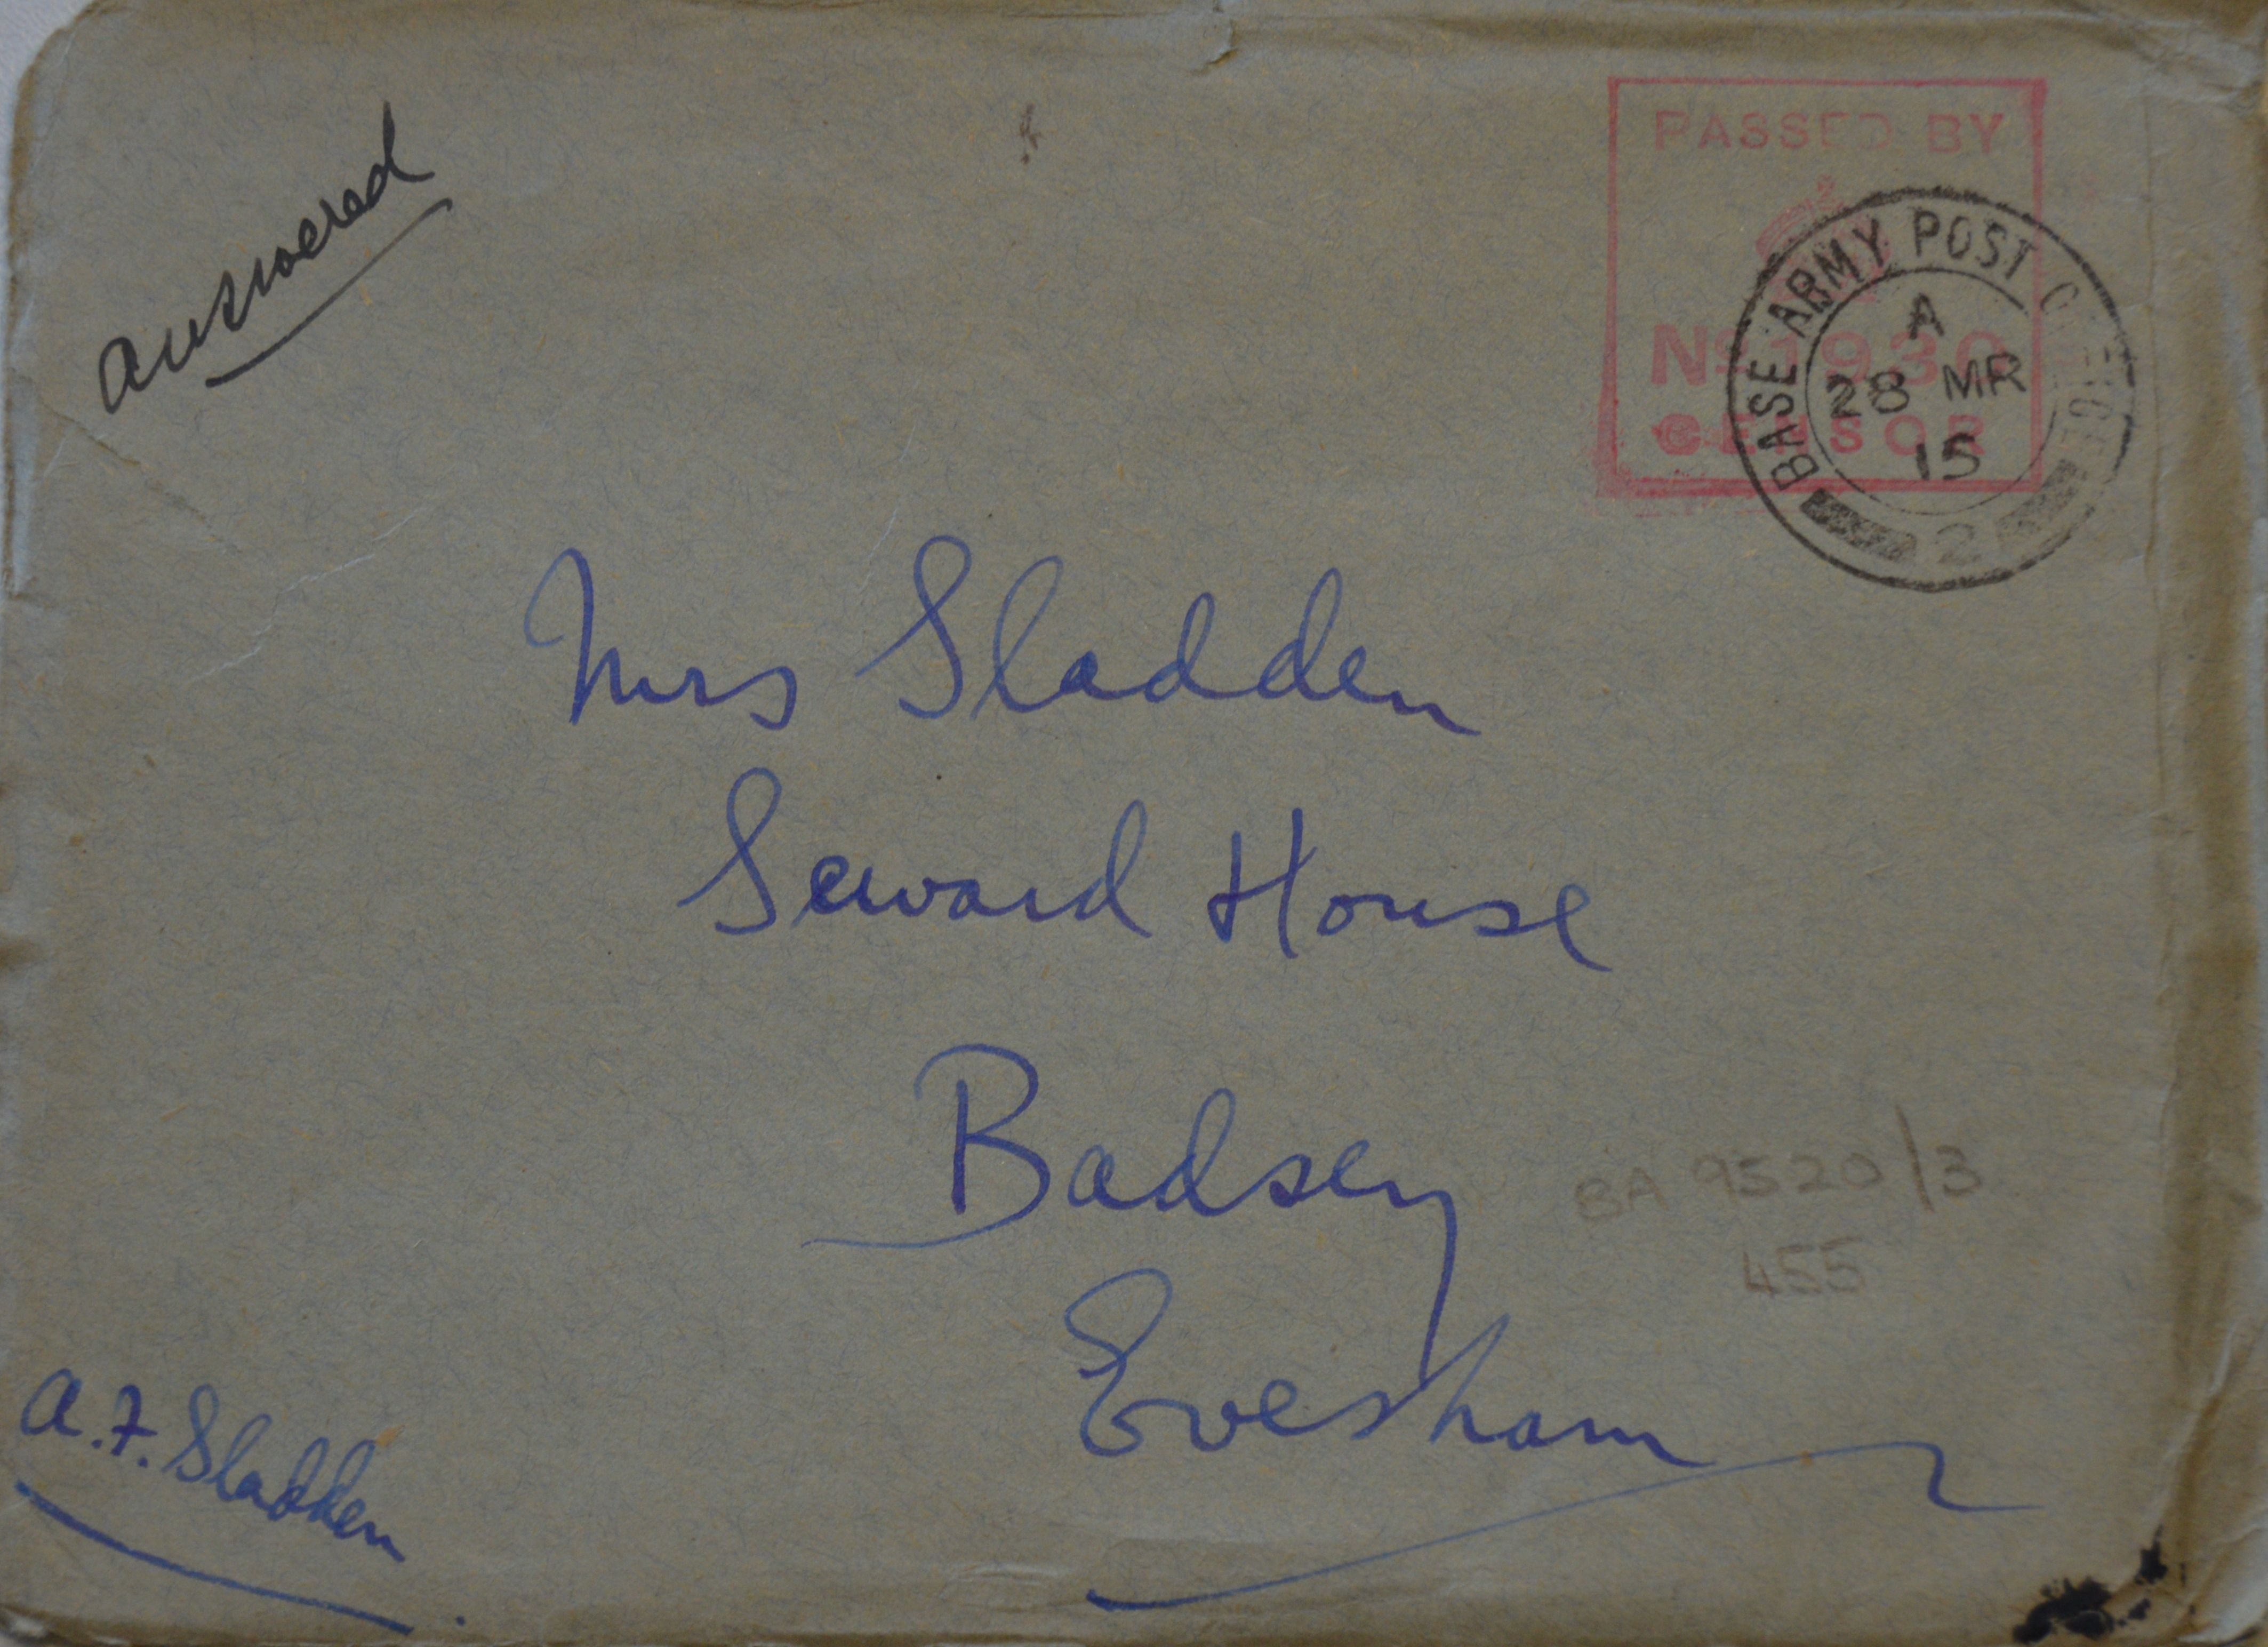 answered
PASSED BY
No 1930
CENSOR
BASE ARMY POST OFFICE
A
28 MR
15
2
Mrs Sladden
Seward House
Badsey
Evesham
BA 9520/3
455
A.F. Sladden